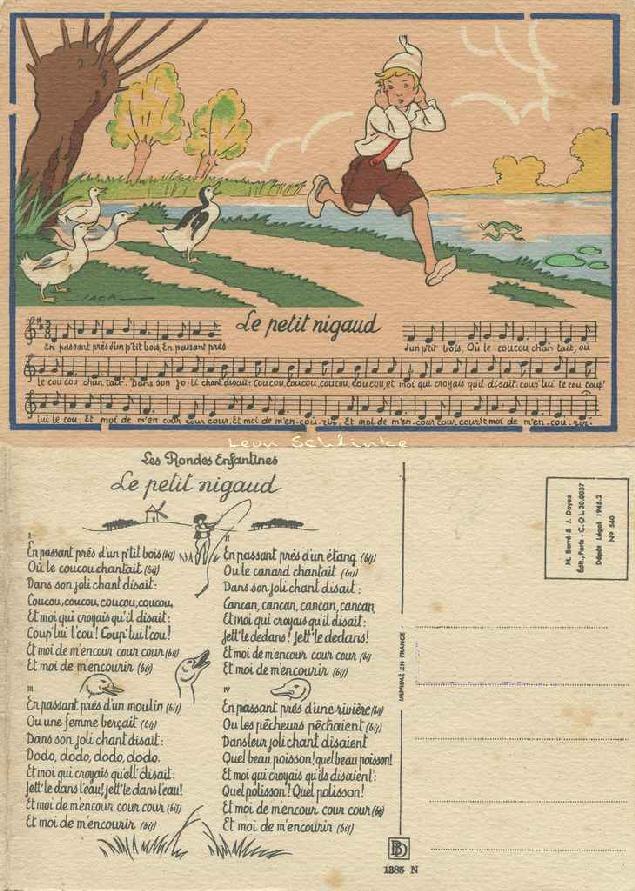 JACK
Le petit nigaud
En passant près d'un p'tit bois, En passant près d'un p'tit bois, Où le coucou chan-tait, où
le cou cou chan-tait. Dans son jo-li chant disait: coucou, coucou, coucou, coucou, et moi qui croyais qu'il disait: coup' lui le cou coup'
lui le cou, Et moi de m'en cour cour cour, Et moi de m'en-cou-rir, Et moi de m'en-cour cour cour et moi de m'en-cou-rir.
Leon Schlinke
Les Rondes Enfantines
Le petit nigaud
I
En passant près d'un p'tit bois (bis)
Où le coucou chantait (bis)
Dans son joli chant disait:
Coucou, coucou, coucou, coucou,
Et moi qui croyais qu'il disait:
Coup' lui l'cou! Coup' lui l'cou!
Et moi de m'encour cour cour (bis)
Et moi de m'encourir (bis)
II
En passant près d'un étang (bis)
Où le canard chantait (bis)
Dans son joli chant disait:
Cancan, cancan, cancan, cancan,
Et moi qui croyais qu'il disait:
Jett' le dedans! Jett' le dedans!
Et moi de m'encour cour cour (bis)
Et moi de m'encourir (bis)
III
En passant près d'un moulin (bis)
Ou une femme berçait (bis)
Dans son joli chant disait:
Dodo, dodo, dodo, dodo.
Et moi qui croyais qu'ell' disait:
Jett' le dans l'eau! jett' le dans l'eau!
Et moi de m'encour cour cour (bis)
Et moi de m'encourir (bis)
IV
En passant près d'une rivière (bis)
Ou les pêcheurs pêchaient (bis)
Dans leur joli chant disaient
Quel beau poisson! quel beau poisson!
Et moi qui croyais qu'ils disaient:
Quel polisson! Quel polisson!
Et moi de m'encour cour cour (bis)
Et moi de m'encourir (bis)
IMPRIMÉ EN FRANCE
M. Barré & J. Dayez
Édit., Paris - C.O.L. 30.0037
Dépôt Légal 1946.2
No 560
BD
1386 N